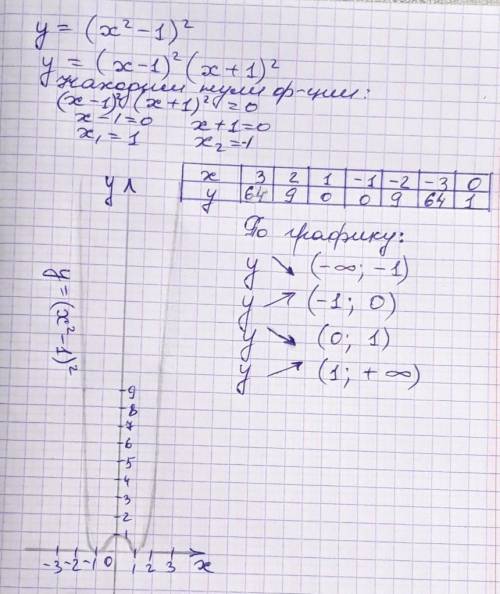 y = (x² - 1)²
y = (x-1)² (x+1)²
находим нули ф-ции:
(x-1)² (x+1)² = 0
x - 1 = 0 x + 1 = 0
x₁ = 1 x₂ = -1
x 3 2 1 -1 -2 -3 0
y 64 9 0 0 9 64 1
По графику:
y ↘ (-∞; -1)
y ↗ (-1; 0)
y ↘ (0; 1)
y ↗ (1; +∞)
y
y = (x² - 1)²
9
8
7
6
5
4
3
2
1
-3 -2 -1 0 1 2 3 x